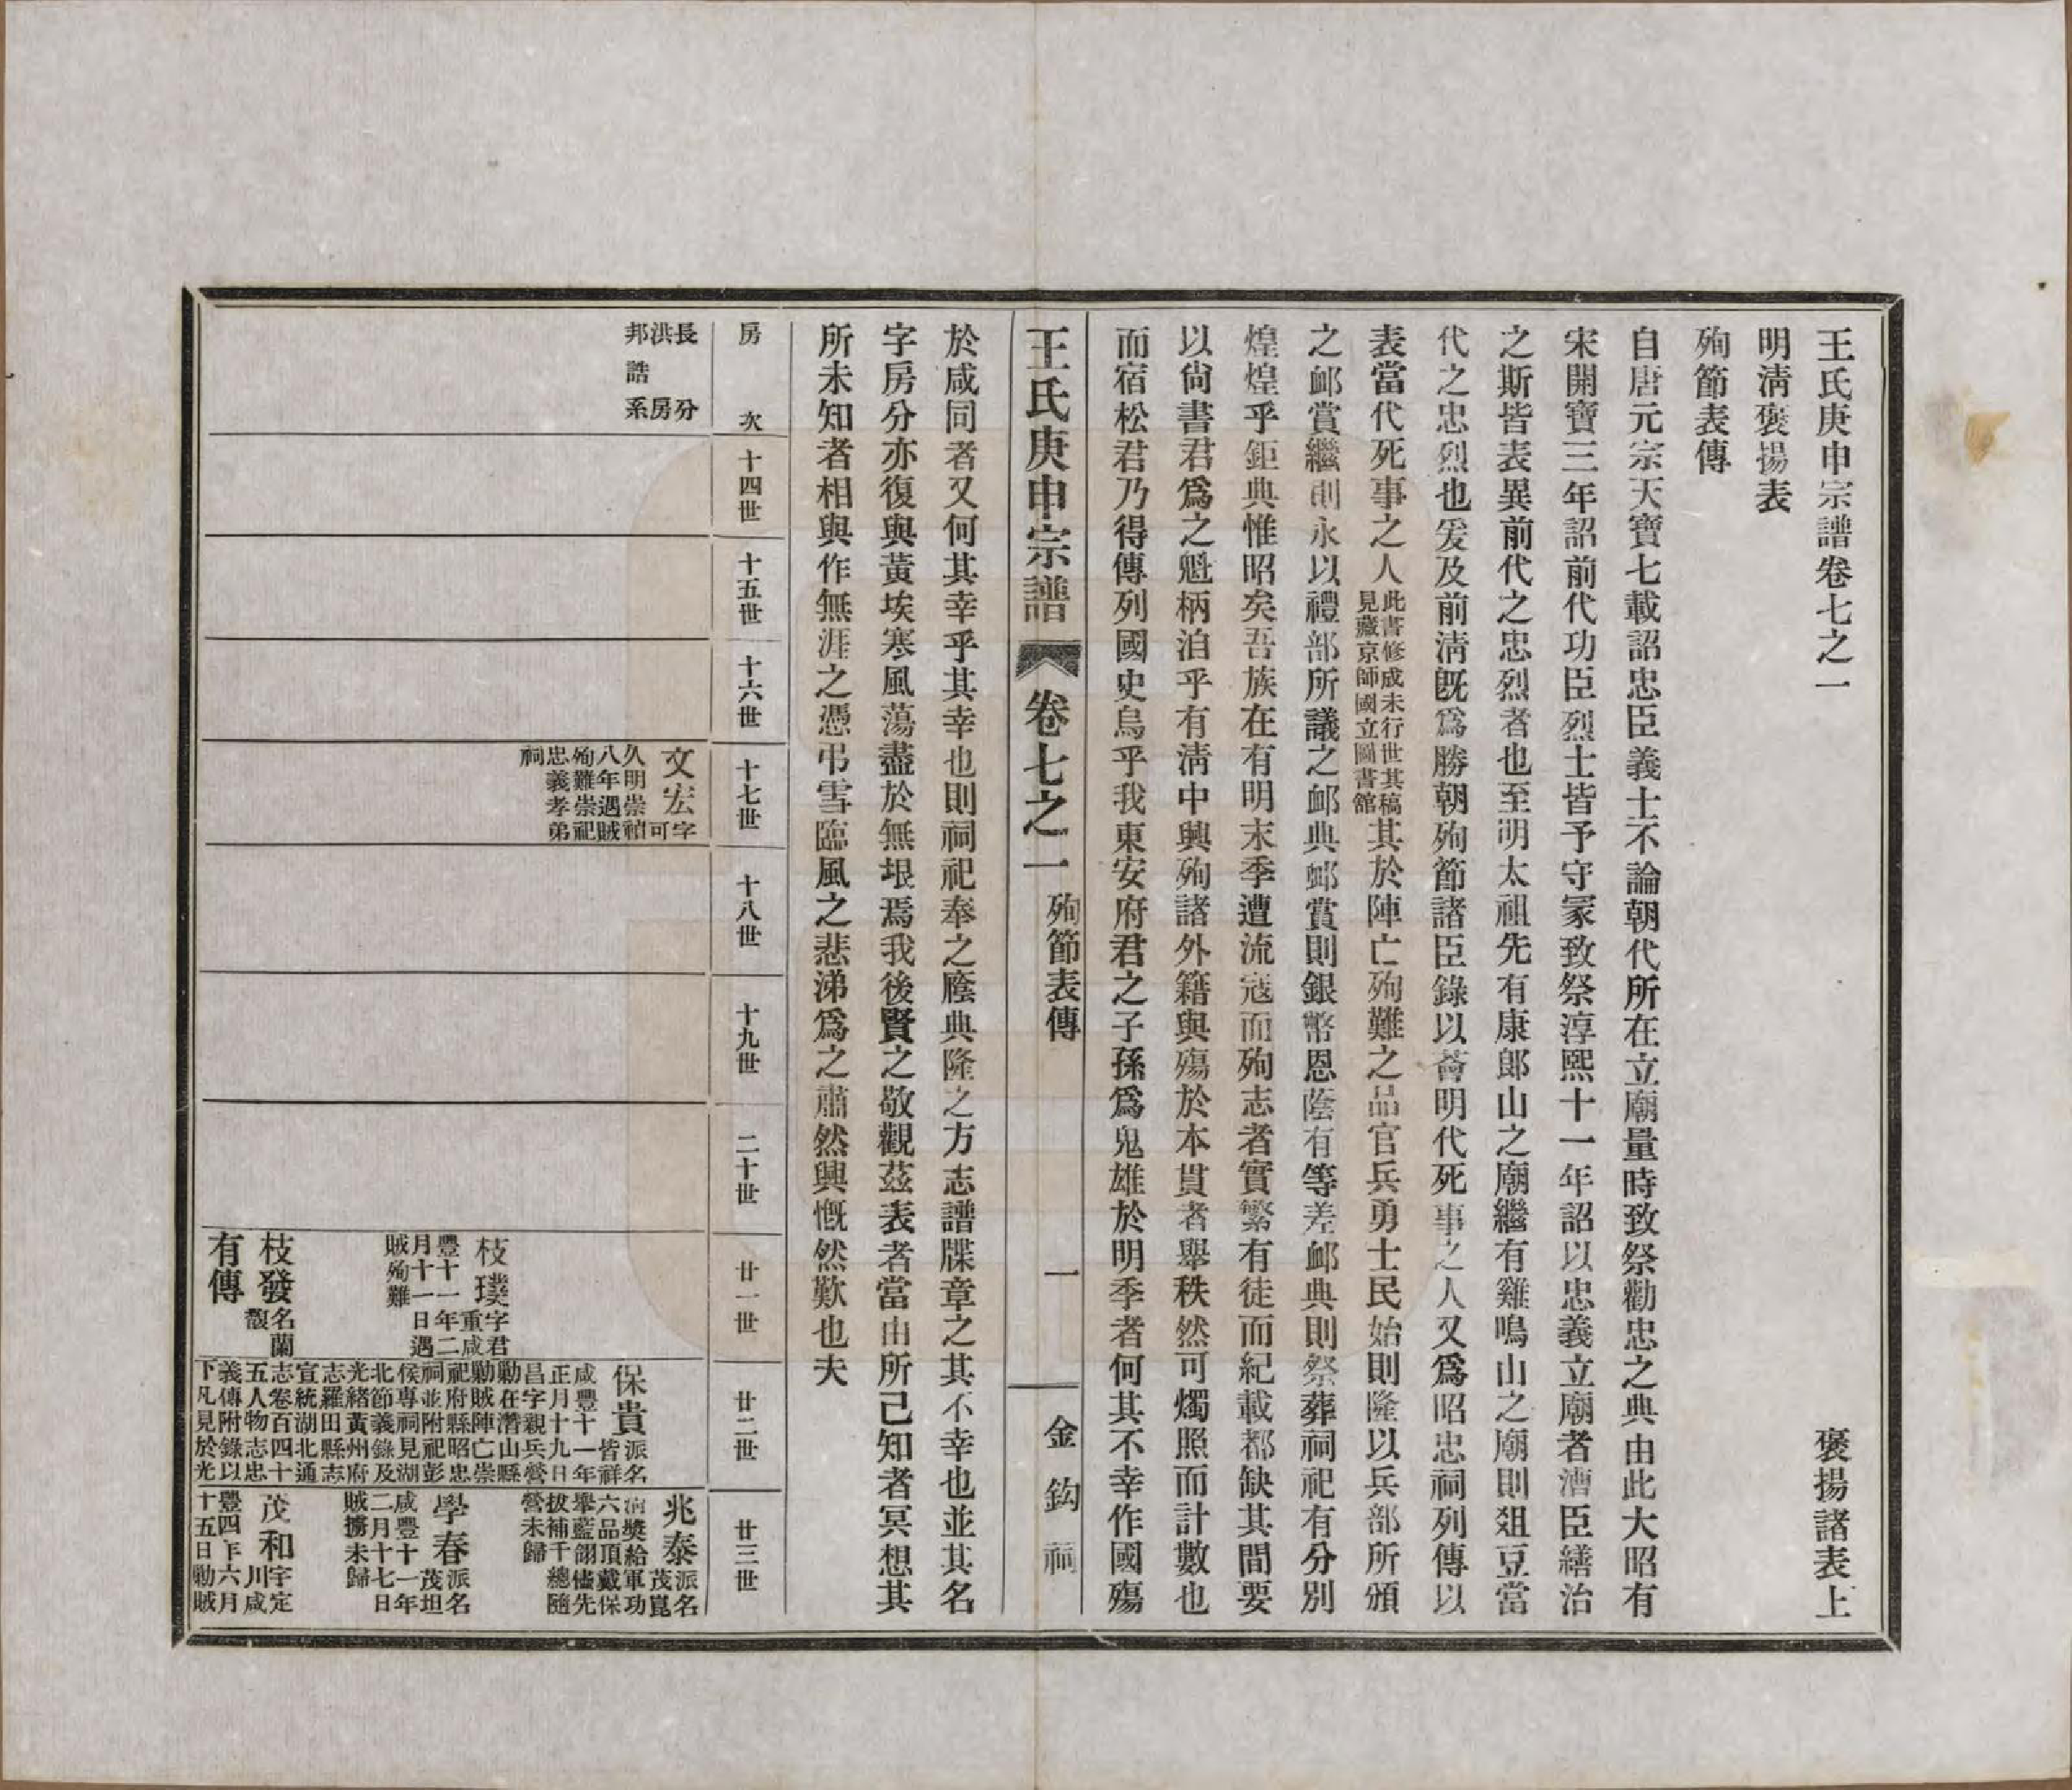 王氏庚申宗譜卷七之一　褒揚諸表上
明淸褒揚表
殉節表傳
自唐元宗天寶七載詔忠臣義士不論朝代所在立廟量時致祭勸忠之典由此大昭有
宋開寶三年詔前代功臣烈士皆予守冢致祭淳熙十一年詔以忠義立廟者漕臣繕治
之斯皆表異前代之忠烈者也至明太祖先有康郎山之廟繼有雞鳴山之廟則俎豆當
代之忠烈也爰及前淸旣爲勝朝殉節諸臣錄以薈明代死事之人又爲昭忠祠列傳以
表當代死事之人此書修成未行世其稿見藏京師國立圖書館其於陣亡殉難之品官兵勇士民始則隆以兵部所頒
之卹賞繼則永以禮部所議之卹典卹賞則銀幣恩蔭有等差卹典則祭葬祠祀有分別
煌煌乎鉅典惟昭矣吾族在有明末季遭流寇而殉志者實繁有徒而紀載都缺其間要
以尙書君爲之魁柄洎乎有淸中興殉諸外籍與殤於本貫者舉秩然可燭照而計數也
而宿松君乃得傳列國史烏乎我東安府君之子孫爲鬼雄於明季者何其不幸作國殤
王氏庚申宗譜　卷七之一　殉節表傳　一　金鈎祠
於咸同者又何其幸乎其幸也則祠祀奉之廕典隆之方志譜牒章之其不幸也並其名
字房分亦復與黃埃寒風蕩盡於無垠焉我後賢之敬觀茲表者當由所已知者冥想其
所未知者相與作無涯之憑弔雪臨風之悲涕爲之肅然興慨然歎也夫
房次　十四世　十五世　十六世　十七世　十八世　十九世　二十世　廿一世　廿二世　廿三世
長　分
洪　房
邦誥系
文宏字可
久明崇禎
八年遇賊
殉難崇祀
忠義孝弟
祠
枝璞字君重咸
豐十一年二
月十一日遇
賊殉難
枝發名蘭馥
有傳
保貴派名皆祥
咸豐十一年
正月十九日
昌字親兵營
勦在潛山縣
勦賊陣亡崇
祀府縣昭忠
祠並附祀彭
侯專祠見湖
北節義錄及
光緒黃州府
志羅田縣志
宣統湖北通
志卷百四十
五人物志忠
義傳附錄以
下凡見於光
兆泰派名茂崑
獎給軍功
六品頂戴保
舉藍翎儘先
拔補千總隨
營未歸
學春派名茂坦
咸豐十一年
二月十七日
賊擄未歸
茂和字定川咸
豐四年六月
十五日勦賊